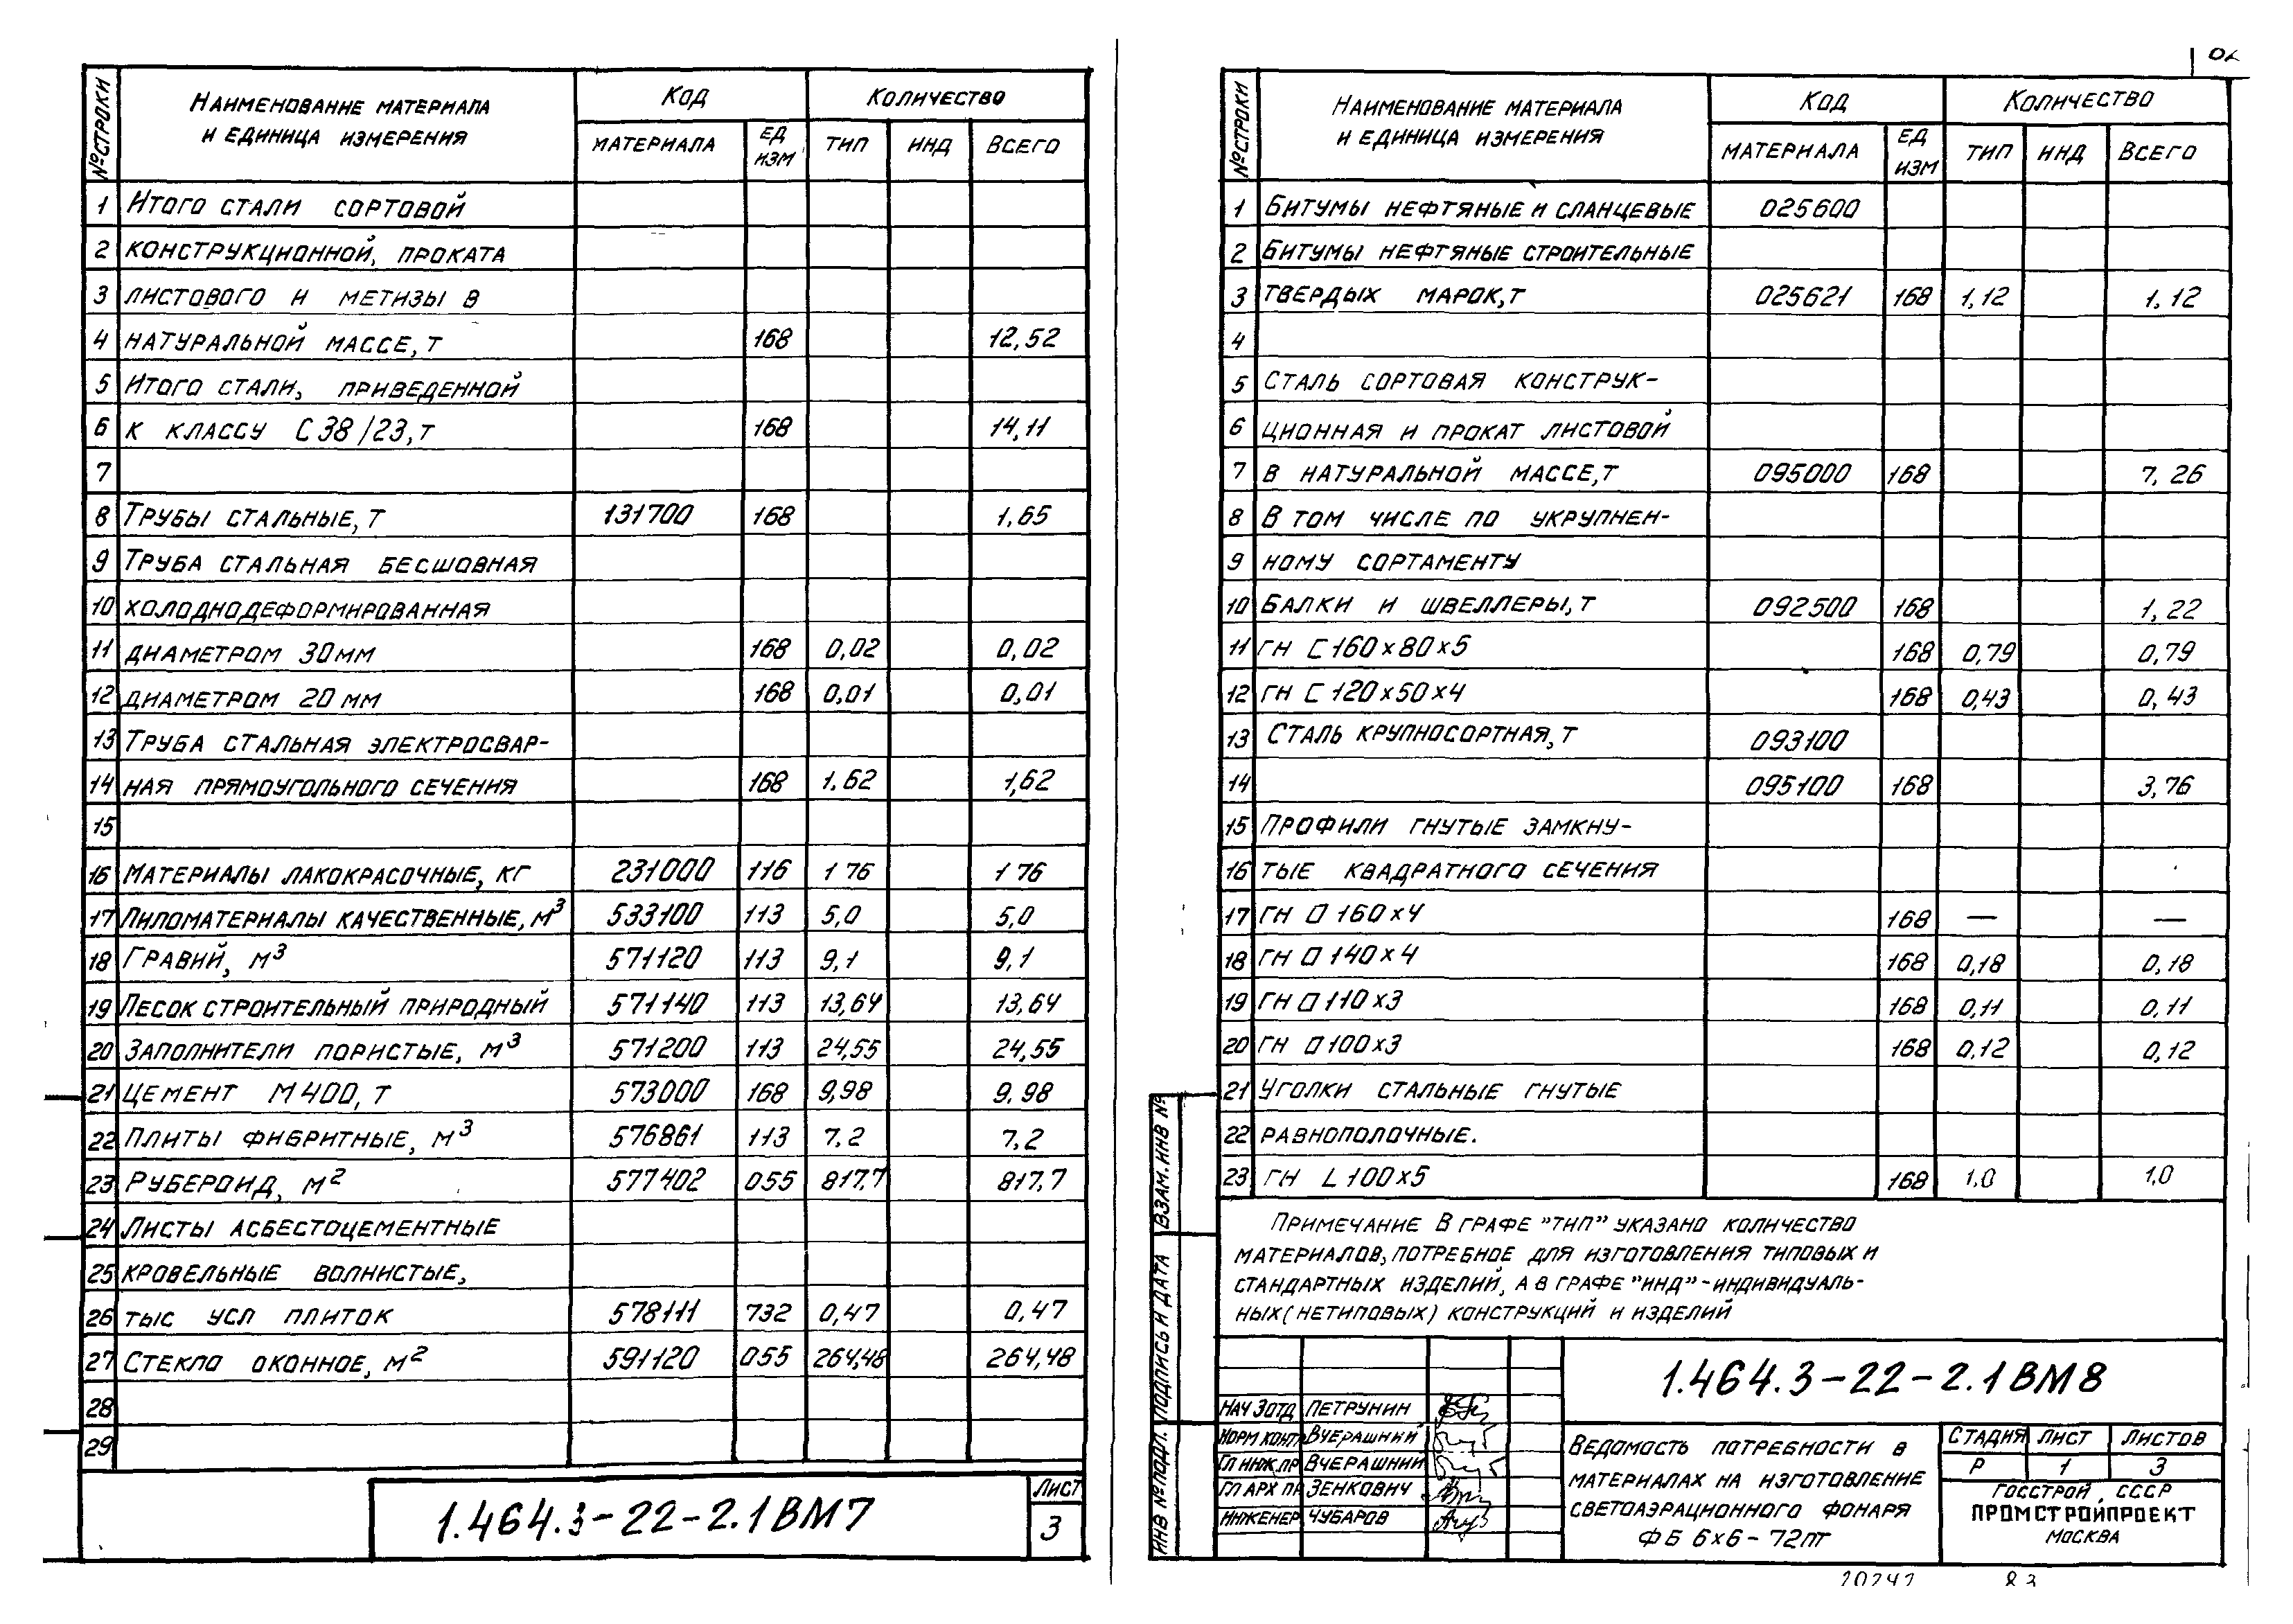 № строки | Наименование материала и единица измерения | Код | Количество
материала | ед изм | тип | инд | всего
1 Итого стали сортовой
2 конструкционной, проката
3 листового и метизы в
4 натуральной массе, т 168 12,52
5 Итого стали, приведенной
6 к классу С 38/23, т 168 14,11
7
8 Трубы стальные, т 131700 168 1,65
9 Труба стальная бесшовная
10 холоднодеформированная
11 диаметром 30 мм 168 0,02 0,02
12 диаметром 20 мм 168 0,01 0,01
13 Труба стальная электросвар-
14 ная прямоугольного сечения 168 1.62 1,62
15
16 Материалы лакокрасочные, кг 231000 116 176 176
17 Пиломатериалы качественные, м³ 533100 113 5,0 5,0
18 Гравий, м³ 571120 113 9,1 9,1
19 Песок строительный природный 571140 113 13,64 13,64
20 Заполнители пористые, м³ 571200 113 24,55 24,55
21 Цемент М400, т 573000 168 9,98 9,98
22 Плиты фибритные, м³ 576861 113 7,2 7,2
23 Рубероид, м² 577402 055 817,7 817,7
24 Листы асбестоцементные
25 кровельные волнистые,
26 тыс усл плиток 578111 732 0,47 0,47
27 Стекло оконное, м² 591120 055 264,48 264,48
28
29
1.464.3-22-2.1ВМ7
Лист
3
№ строки | Наименование материала и единица измерения | Код | Количество
материала | ед изм | тип | инд | Всего
1 Битумы нефтяные и сланцевые 025600
2 Битумы нефтяные строительные
3 твердых марок, т 025621 168 1,12 1,12
4
5 Сталь сортовая конструк-
6 ционная и прокат листовой
7 в натуральной массе, т 095000 168 7,26
8 В том числе по укрупнен-
9 ному сортаменту
10 Балки и швеллеры, т 092500 168 1,22
11 гн С 160×80×5 168 0,79 0,79
12 гн С 120×50×4 168 0,43 0,43
13 Сталь крупносортная, т 093100
14 095100 168 3,76
15 Профили гнутые замкну-
16 тые квадратного сечения
17 гн □ 160×4 168 — —
18 гн □ 140×4 168 0,18 0,18
19 гн □ 110×3 168 0,11 0,11
20 гн □ 100×3 168 0,12 0,12
21 Уголки стальные гнутые
22 равнополочные.
23 гн L 100×5 168 1,0 1,0
Примечание В графе "тип" указано количество
материалов, потребное для изготовления типовых и
стандартных изделий, а в графе "инд"-индивидуаль-
ных (нетиповых) конструкций и изделий
Взам. инв №
Подпись и дата
Инв № подл.
1.464.3-22-2.1ВМ8
Нач 3 отд Петрунин
Норм контр Вчерашний
Гл инж пр Вчерашний
Гл арх пр Зенкович
Инженер Чубаров
Ведомость потребности в
материалах на изготовление
светоаэрационного фонаря
ФБ 6×6-72пт
Стадия Лист Листов
Р 1 3
Госстрой СССР
ПРОМСТРОЙПРОЕКТ
Москва